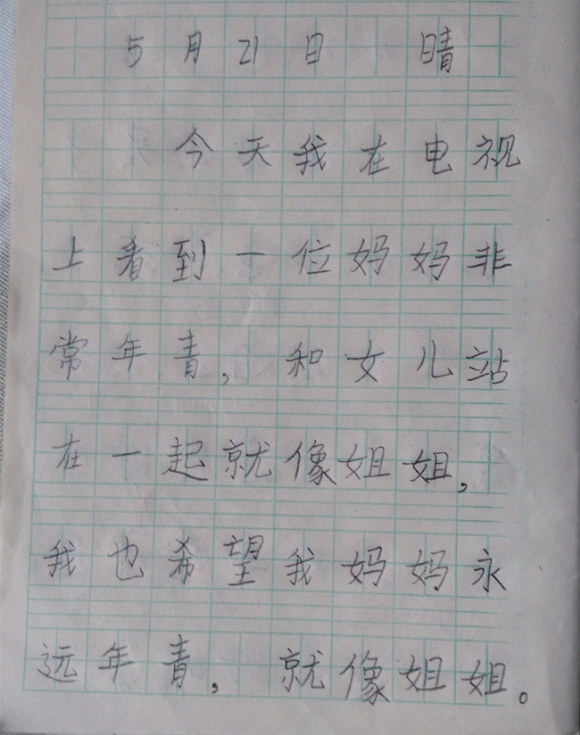 5月21日 晴
今天我在电视
上看到一位妈妈非
常年青，和女儿站
在一起就像姐姐，
我也希望我妈妈永
远年青，就像姐姐。